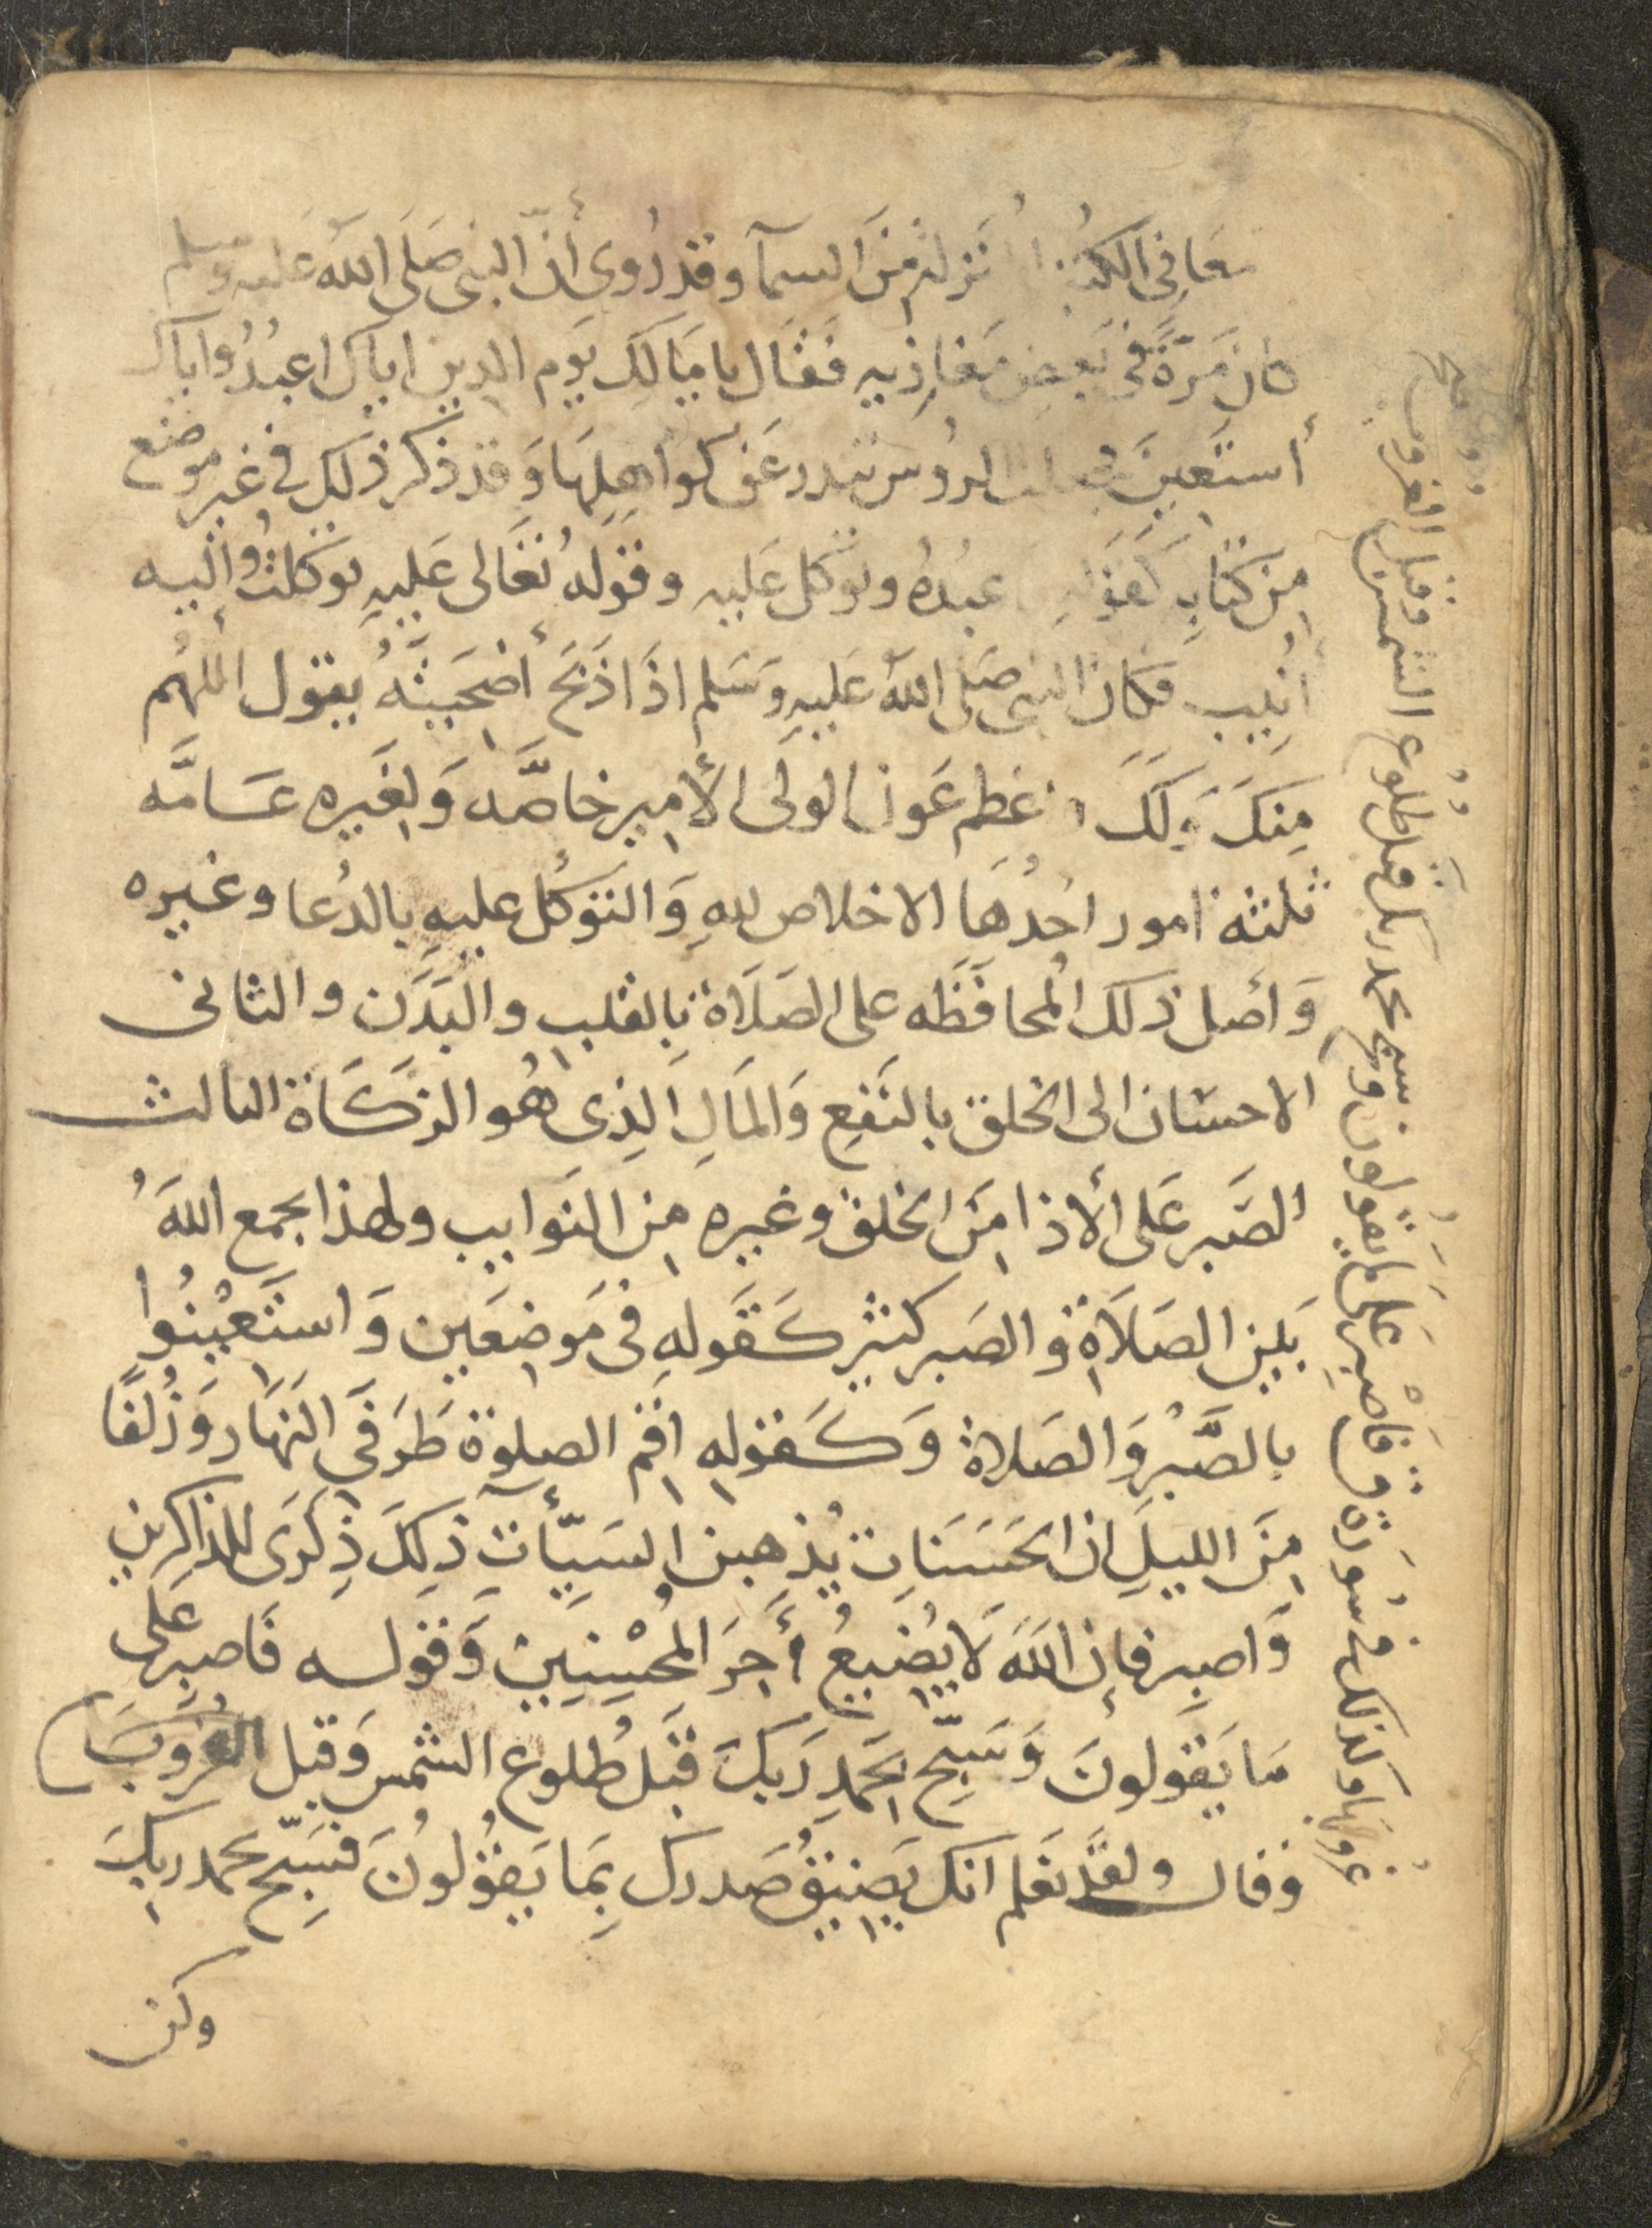 معاني الكتب نزلت من السمآ وقد رُوي أن النبي صَلى الله عَليه وسلم
كان مَرّةً في بَعض مَغازيه فَقال يا مَالك يَوم الدين اياك اعبُدُ واياك
أستَعين الروُس تندر عَن كواهِلهَا وَقد ذكر ذلك في غير موضع
مِن كتابِه كقوله اعبُدهُ وتوكل عَليه وقوله تعَالى عَليهِ توكلتُ وإليه
أنيب وكان النبي صَلى اللهُ عَليهِ وَسَلم اذَا ذَبَحَ أضحيَتَهُ يقول اللهُم
مِنكَ وَلَكَ اعظم عَون لولى الأمِير خاصَّه وَلِغَيره عَامَّه
ثلثة امور احُدُهَا الاخلاص للهِ وَالتوَكُل عليهِ بالدُعا وغيره
وَأصل ذلكَ المُحافَظَه على الصَلاَة بالقلبِ والبَدَن والثاني
الاحسَان الى الخلق بالنَفعِ وَالمَالِ الذِى هُو الزكَاة الثالث
الصَّبر عَلى الأذا مِنَ الخلق وغيره مِن النَوايب ولهذا يجمع اللهَُ
بَين الصَلاَةِ والصَبر كثير كَقَولهِ في مَوضِعَين وَاستَعِينُوا
بالصَّبْر وَالصَلاة وَكَقولهِ اقِم الصلوة طَرَفَي النَهَار وَزُلَفًا
مِنَ الليلِ ان الحَسَنَاتِ يُذهبن السَيّأت ذلِكَ ذِكرَى للذاكرين
وَاصبِر فإن اللهَ لاَ يُضيعُ أجرَ المُحْسِنِين وَقوله فاصبِر عَلى
مَا يَقولونَ وَسَبّح بحَمدِ رَبكَ قَبل طُلوع الشمس وَقبل الغُروب
وقال ولقد نَعلم انك يَضِيقُ صَدرك بِمَا يَقُولُونَ فسَبّح بحمد ربكَ
وكن
غروبها وكذلك في سُورَة ق فاصْبِر عَلى ما يقولون وسبح بحمد ربك قبل طلوع الشمس وقبل الغروب